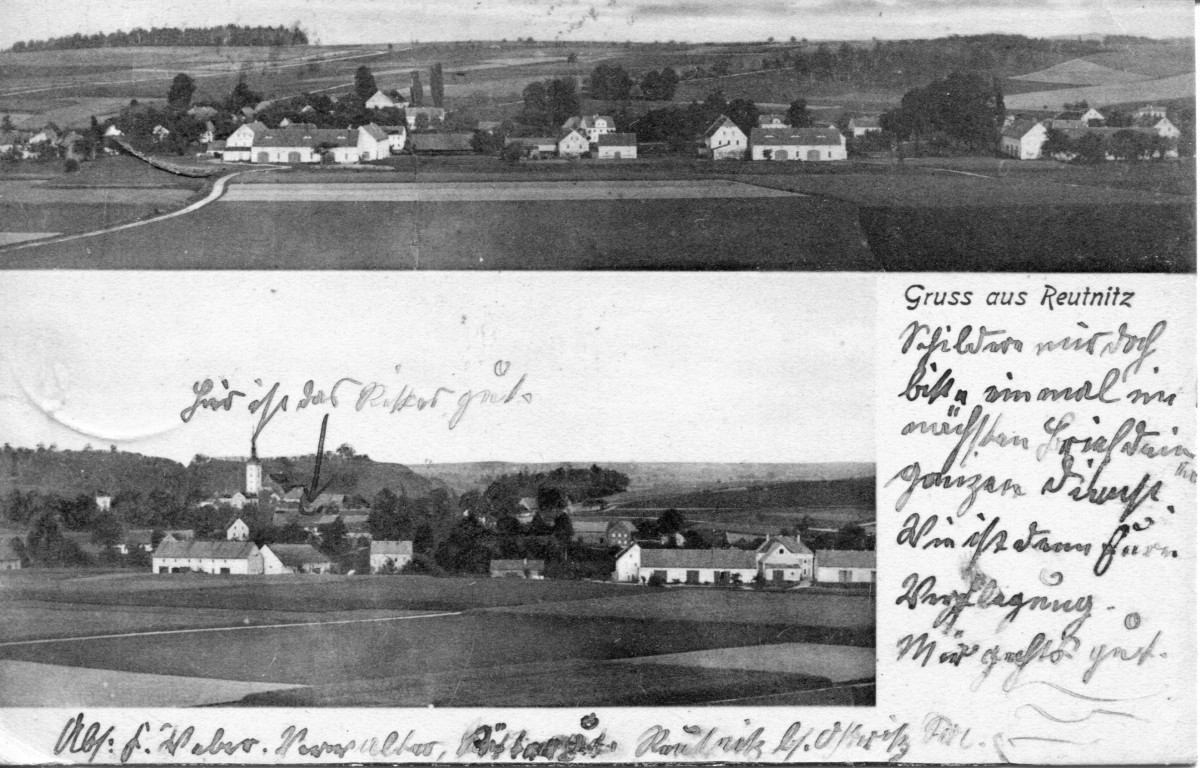 Gruss aus Reutnitz
Schildere mir doch
bitte einmal im
nächsten Brief dein
ganzen Dienst
Wie ist denn Eure
Verpflegung.
Mir gehts gut.
Hier ist das Rittergut.
Abs: F. Weber. Verwalter, Rittergut Reutnitz b/. Ostritz